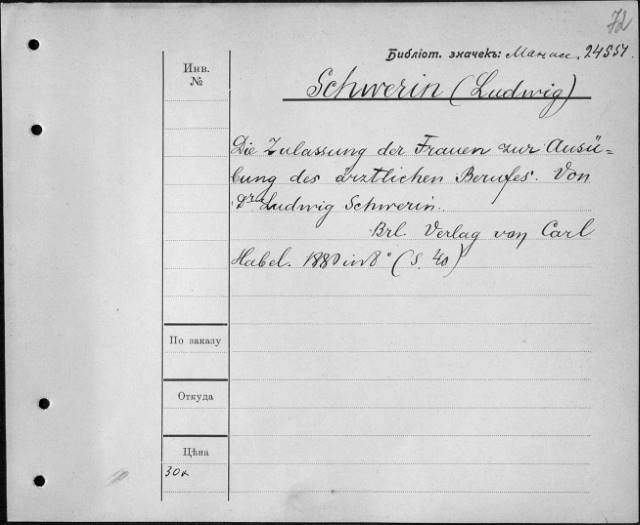 72
Библіот. значекъ: Манасс. 24551.
Инв.
№
Schwerin (Ludwig)
Die Zulassung der Frauen zur Ausü-
bung des ärztlichen Berufes. Von
Dr Ludwig Schwerin.
Brl. Verlag von Carl
Habel. 1880 in 8° (S. 40)
По заказу
Откуда
Цѣна
30к